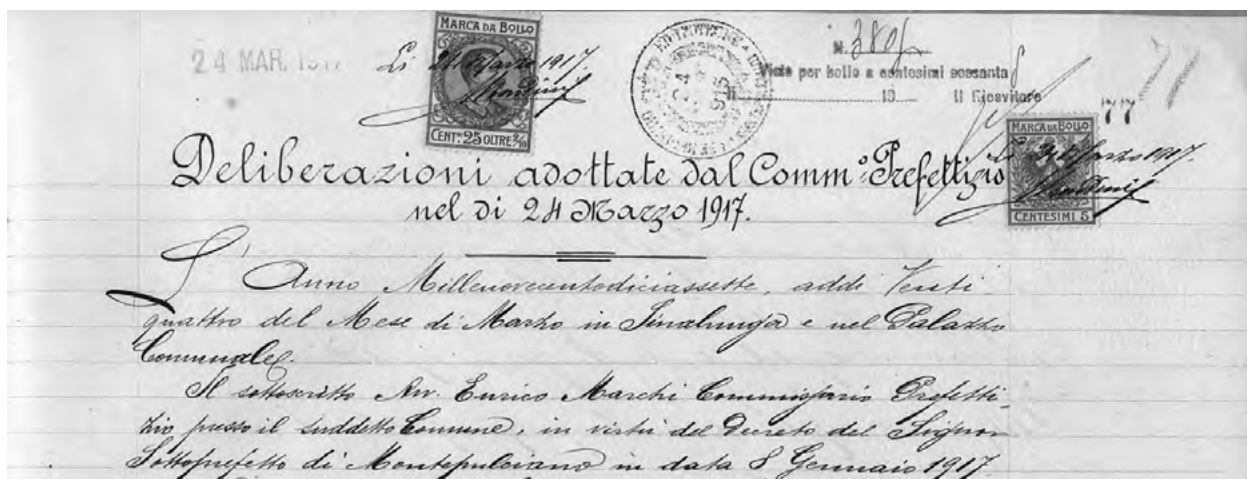 24 MAR. 1917
Li 24 Marzo 1917.
MARCA DA BOLLO
CENT. 25 OLTRE 2/10
N. 380
Visto per bollo a centesimi sessanta
Il 19 Il Ricevitore
77
MARCA DA BOLLO
Li 24 Marzo 1917.
CENTESIMI 5
Deliberazioni adottate dal Comm.º Prefettizio
nel dì 24 Marzo 1917.
L'Anno Millenovecentodiciassette, addì Venti
quattro del Mese di Marzo in Sinalunga e nel Palazzo
Comunale.
Il sottoscritto Avv. Enrico Marchi Commissario Prefetti-
zio presso il suddetto Comune, in virtù del Decreto del Signor
Sottoprefetto di Montepulciano in data 8 Gennaio 1917